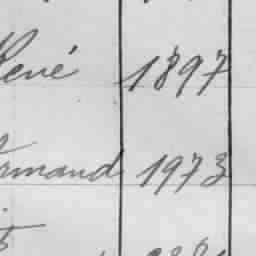 René 1897
rmand 1973